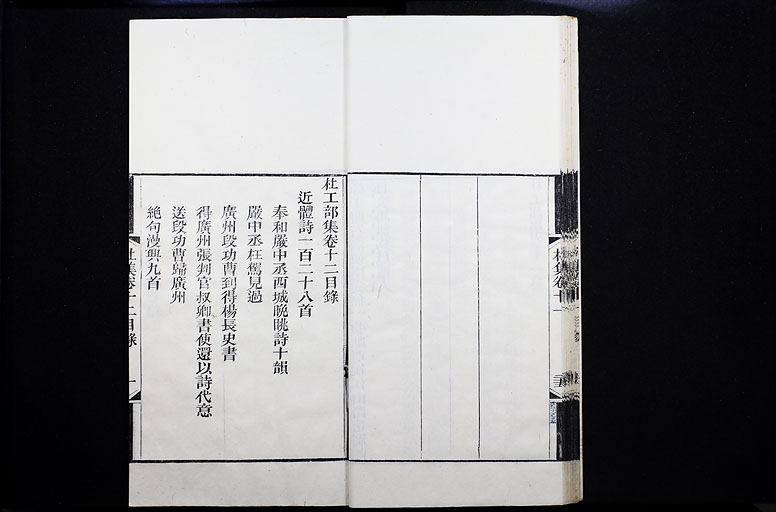 杜工部集卷十二目錄
近體詩一百二十八首
奉和嚴中丞西城晚眺詩十韻
嚴中丞枉駕見過
廣州段功曹到得楊長史書
得廣州張判官叔卿書使還以詩代意
送段功曹歸廣州
絕句漫興九首
杜集卷十二目錄
一